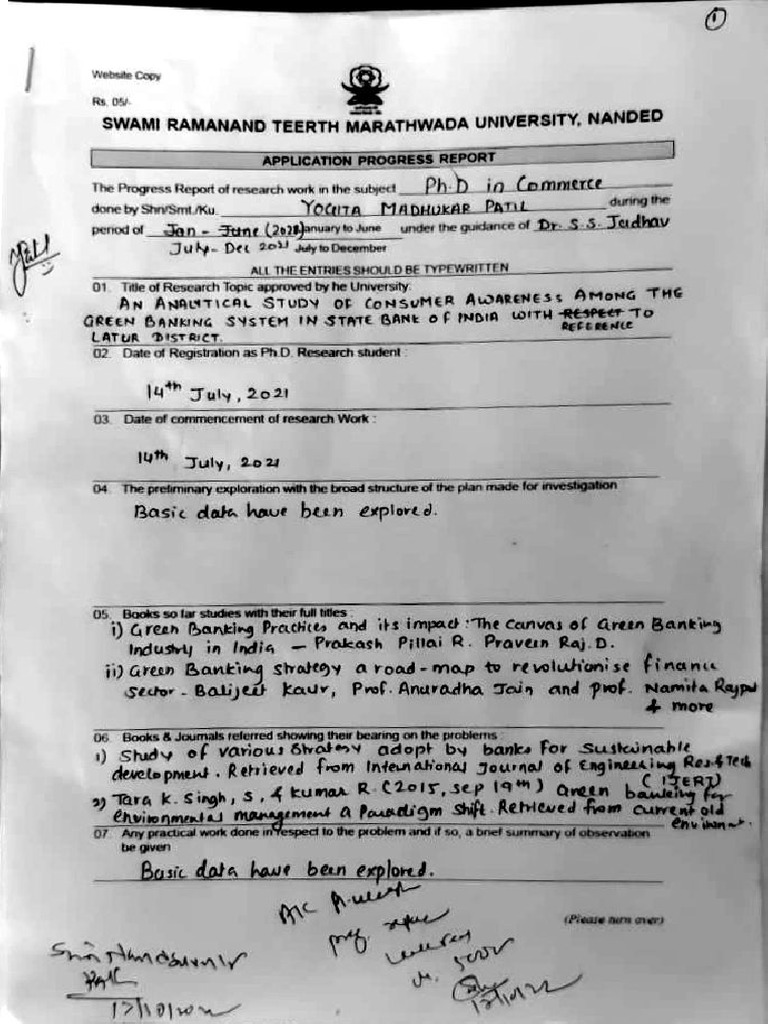 1
Website Copy
Rs. 05/-
SWAMI RAMANAND TEERTH MARATHWADA UNIVERSITY, NANDED
APPLICATION PROGRESS REPORT
The Progress Report of research work in the subject Ph.D in Commerce
done by Shri/Smt./Ku. YOGITA MADHUKAR PATIL during the
period of Jan - June (2021) anuary to June under the guidance of Dr. S.S. Jadhav
July- Dec 2021 July to December
ALL THE ENTRIES SHOULD BE TYPEWRITTEN
01. Title of Research Topic approved by he University:
AN ANALYTICAL STUDY OF CONSUMER AWARENESS AMONG THE
GREEN BANKING SYSTEM IN STATE BANK OF INDIA WITH RESPECT TO
REFERENCE
LATUR DISTRICT.
02. Date of Registration as Ph.D. Research student :
14th July, 2021
03. Date of commencement of research Work :
14th July, 2021
04. The preliminary exploration with the broad structure of the plan made for investigation
Basic data have been explored.
05. Books so far studies with their full titles :
i) Green Banking Practices and its impact : The Canvas of Green Banking
Industry in India - Prakash Pillai R. Praveen Raj. D.
ii) Green Banking strategy a road-map to revolutionise finance
sector - Balijeet Kaur, Prof. Anuradha Jain and prof. Namita Rajput
& more
06. Books & Journals referred showing their bearing on the problems :
1) Study of various Strategy adopt by banks for Sustainable
development. Retrieved from International Journal of Engineering Res. & Tech
(IJERT)
2) Tara K. Singh, S, & Kumar R. (2015, sep 19th) Green banking for
environmental management a Paradigm Shift. Retrieved from current old
07. Any practical work done in respect to the problem and if so, a brief summary of observation
be given
Basic data have been explored.
(Please turn over)
17/10/22